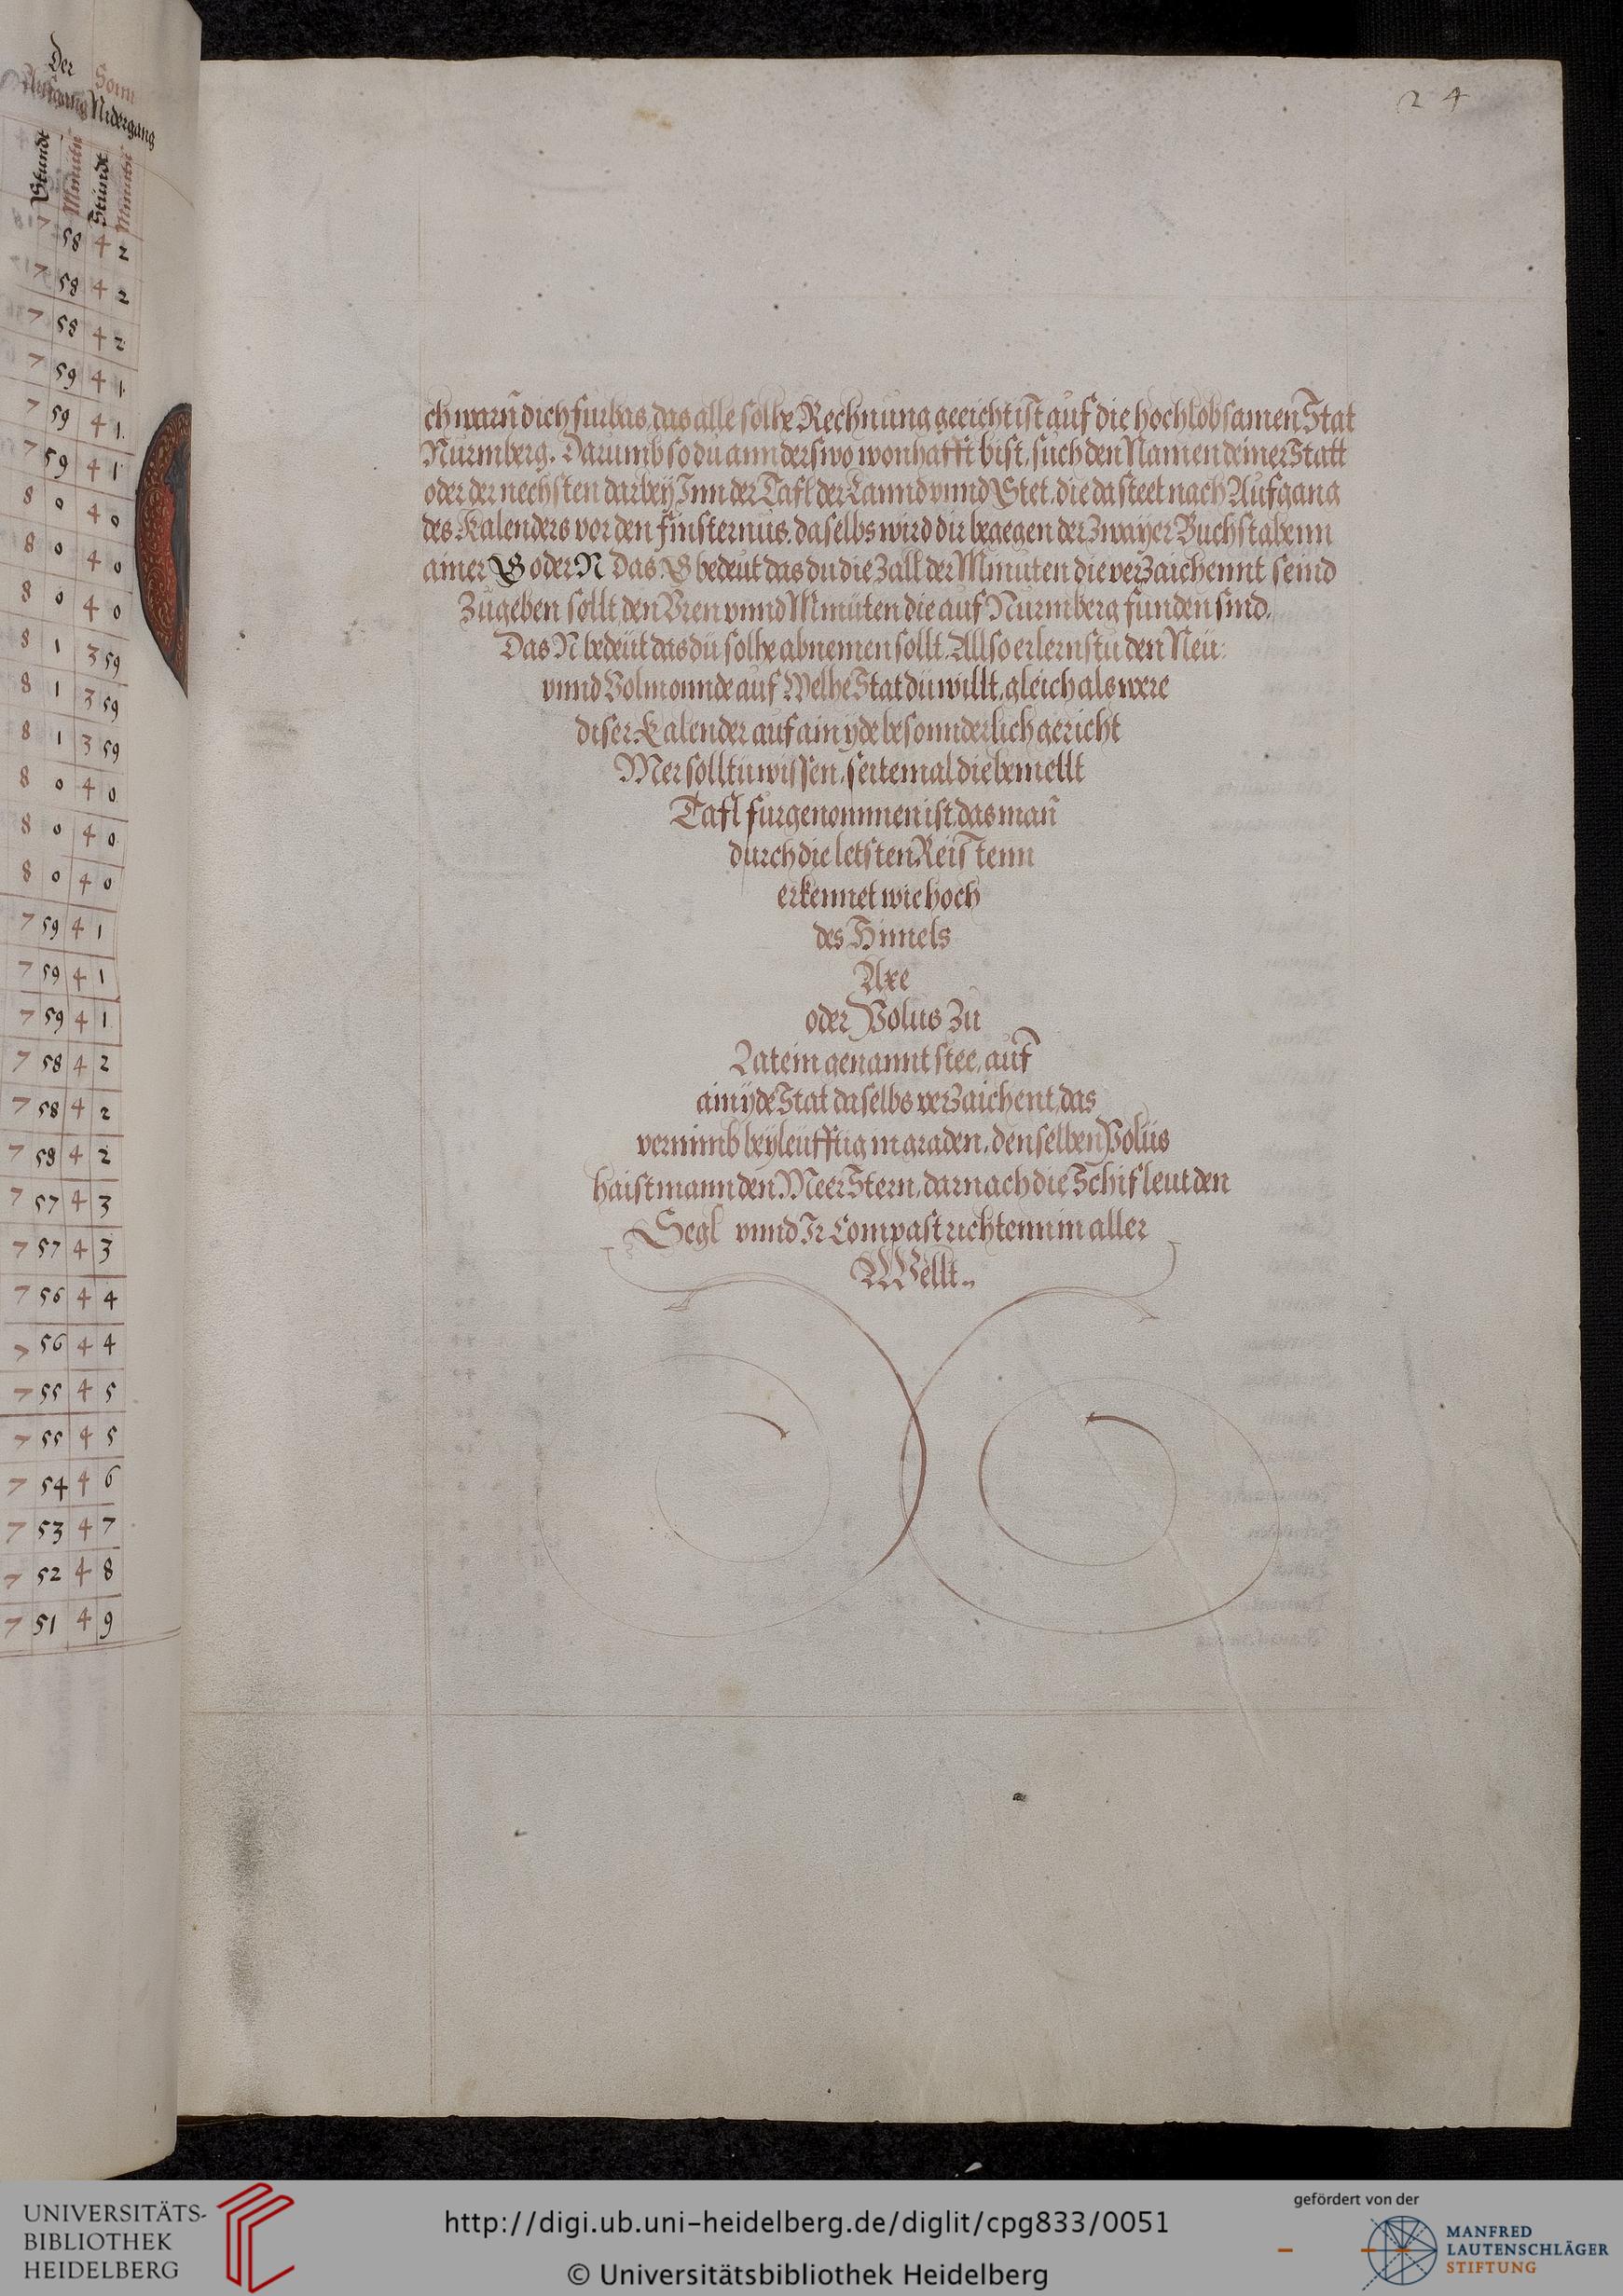 Der Sonn
Aufgang Nidergang
Stundt Minuten Stundt Minuten
7 58 4 2
7 58 4 2
7 58 4 2
7 59 4 1
7 59 4 1
7 59 4 1
8 0 4 0
8 0 4 0
8 0 4 0
8 1 3 59
8 1 3 59
8 1 3 59
8 0 4 0
8 0 4 0
8 0 4 0
7 59 4 1
7 59 4 1
7 59 4 1
7 58 4 2
7 58 4 2
7 58 4 2
7 57 4 3
7 57 4 3
7 56 4 4
7 56 4 4
7 55 4 5
7 55 4 5
7 54 4 6
7 53 4 7
7 52 4 8
7 51 4 9
24
ch warn̄ dich furbas, das alle solhe Rechnung geeicht ist auf die hochlobsamen Stat
Nurmberg. Darumb so du annderswo wonhafft bist, such den Namen deiner Statt
oder der nechsten darbeÿ Inn der Tafl der Lannd vnnd Stet, die da steet nach Aufgang
des Kalenders vor den finsternus, daselbs wird dir begegen der zwayer Buchstabenn
ainer G oder N Das G bedeut das du die Zall der Minuten die verzaichennt seind
Zugeben sollt, den Vren vnnd Minuten die auf Nurmberg funden sind,
Das N bedeut das du solhe abnemen sollt, Allso erlernstu den Neu:
vnnd Volmonnde auf Welhe Stat du willt, gleich als were
diser Kalender auf ain yde besonnderlich gericht
Mer solltu wissen, seitemal die bemellt
Tafl furgenommen ist, das man̄
durch die letsten Reis Tenn
erkennet wie hoch
des Himels
Axe
oder Polus Zu
Latein genannt stee, auf
ain ÿde Stat daselbs verzaichent, das
vernimb beÿleufftig in graden, denselben Polus
haist mann den Meer Stern, darnach die Schifleut den
Segl vnnd Ir Compast richtenn in aller
Wellt..
UNIVERSITÄTS-
BIBLIOTHEK
HEIDELBERG
http://digi.ub.uni-heidelberg.de/diglit/cpg833/0051
© Universitätsbibliothek Heidelberg
gefördert von der
MANFRED
LAUTENSCHLÄGER
STIFTUNG